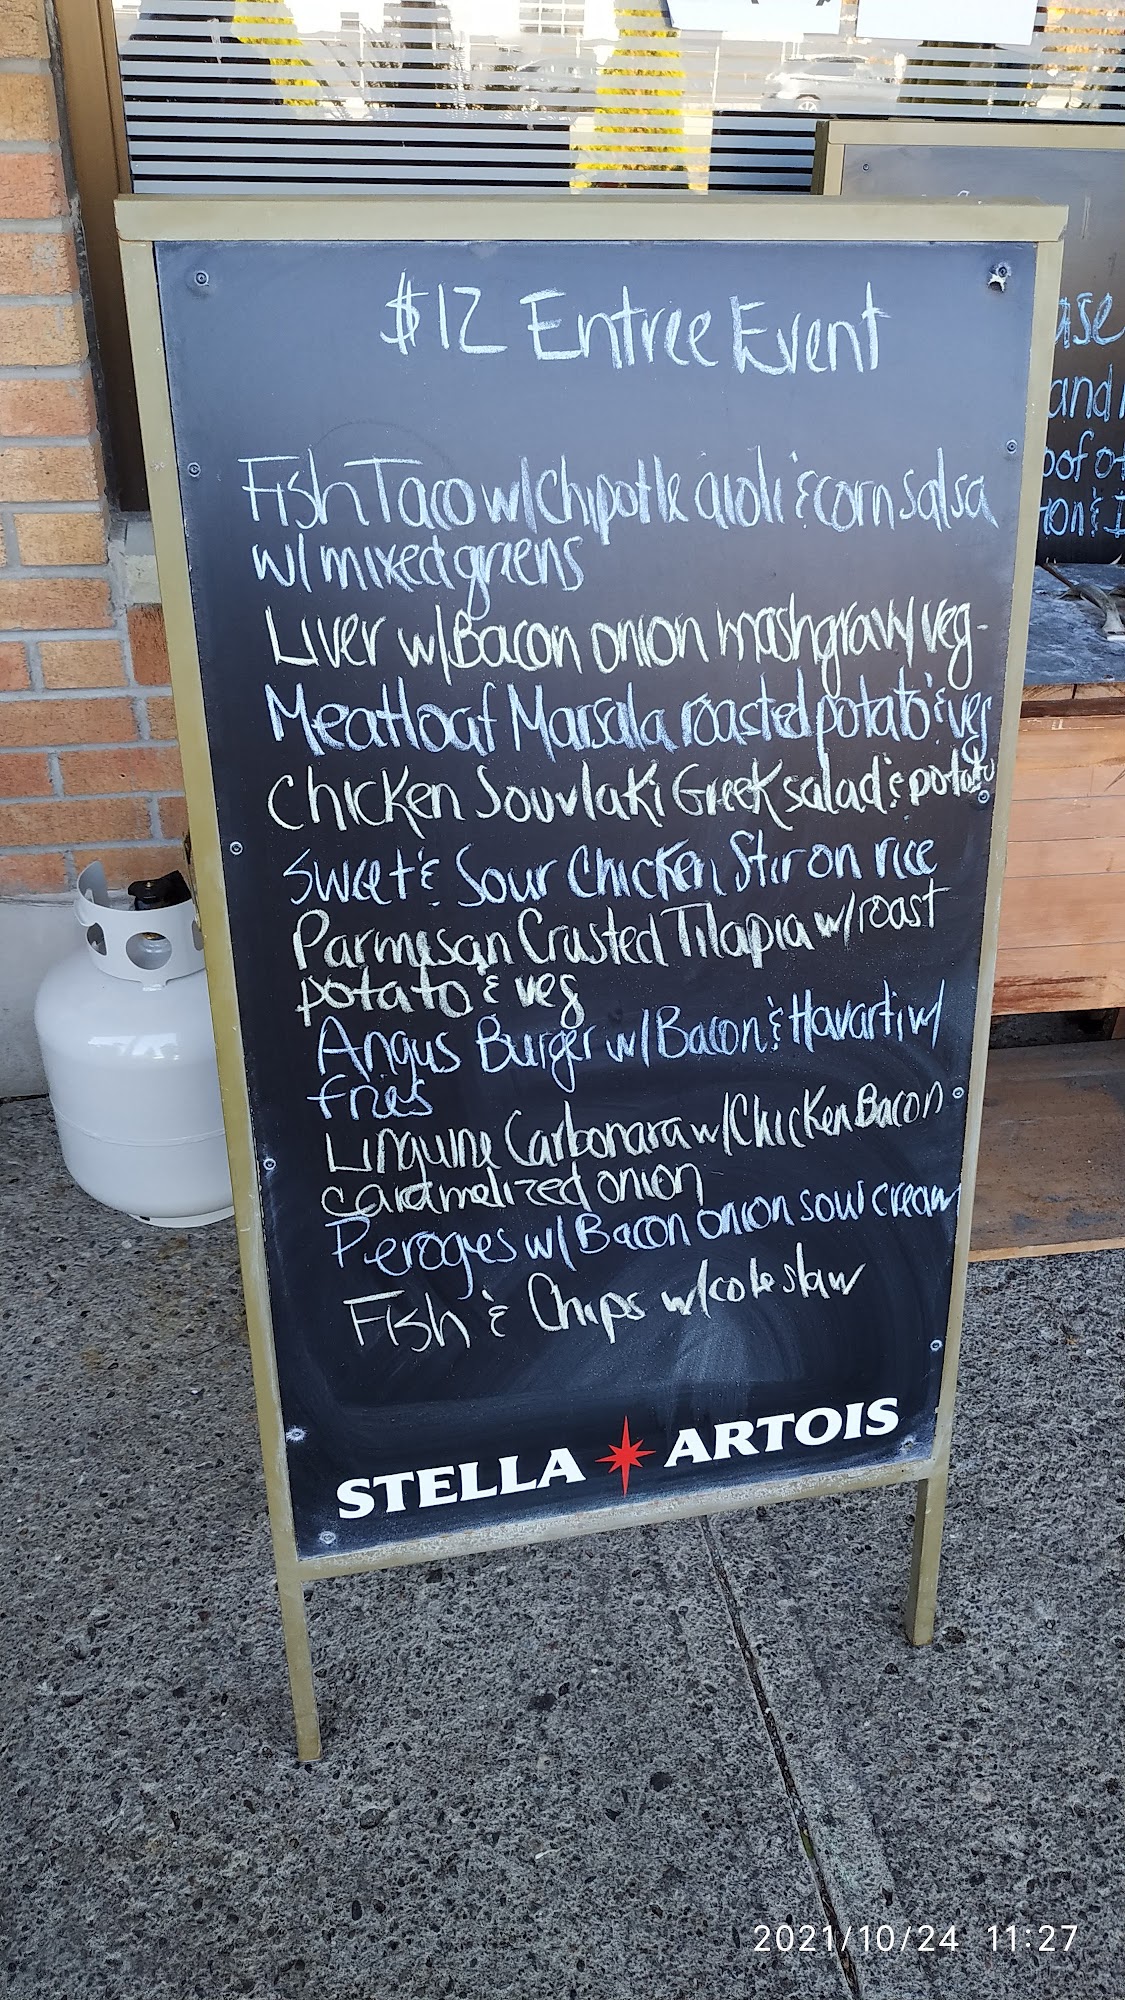 $12 Entree Event
Fish Taco w/Chipotle aioli & corn salsa
w/ mixed greens
Liver w/Bacon onion mash gravy veg-
Meatloaf Marsala roasted potato & veg
Chicken Souvlaki Greek salad & potato
Sweet & Sour Chicken Stir on rice
Parmesan Crusted Tilapia w/roast
potato & veg
Angus Burger w/Bacon & Havarti w/
fries
Linguine Carbonara w/Chicken Bacon
caramelized onion
Perogies w/Bacon onion sour cream
Fish & Chips w/cole slaw
STELLA ARTOIS
and
2021/10/24 11:27